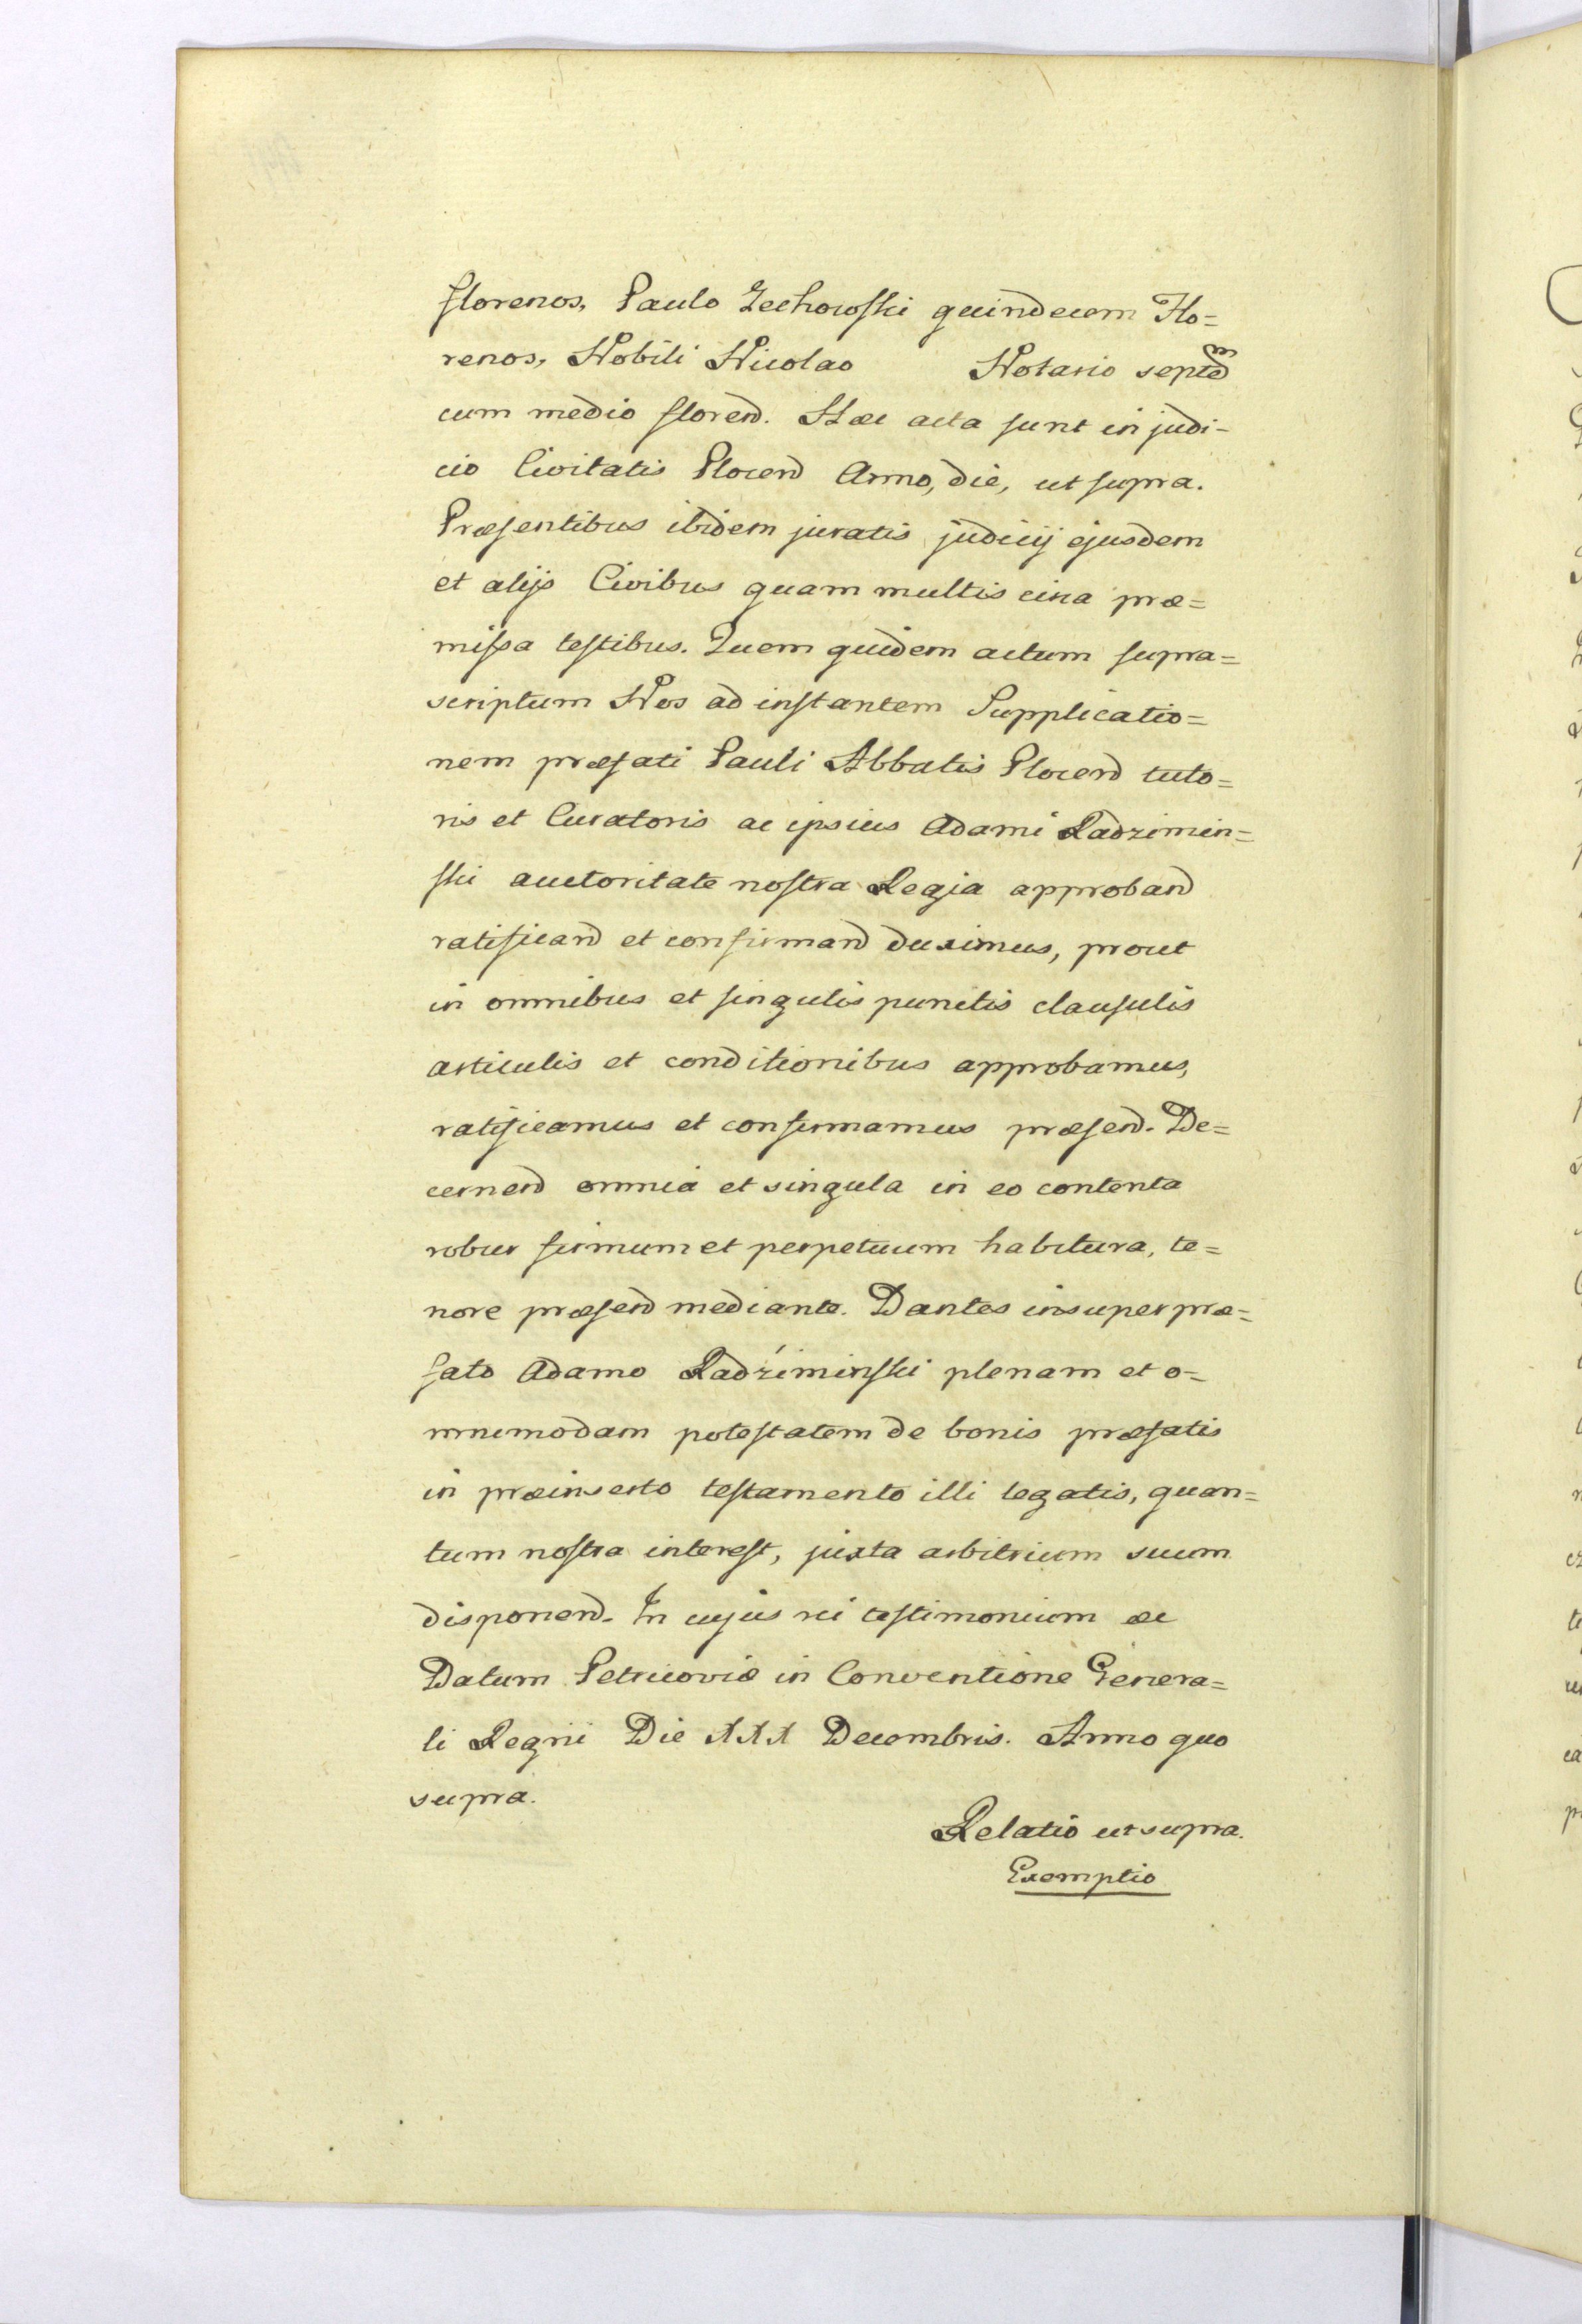 florenos, Paulo Zechowski quindecem Flo=
renos, Nobili Nicolao Notario septem
cum medio floren. Hæc acta sunt in judi-
cio Civitatis Plocen Anno, die, ut supra.
Præsentibus ibidem juratis judicij ejusdem
et alijs Civibus quam multis circa præ=
missa testibus. Quem quidem actum supra=
scriptum Nos ad instantem Supplicatio=
nem præfati Pauli Abbatis Plocen tuto=
ris et Curatoris ac ipsius Adami Radzimin=
ski auctoritate nostra Regia approband
ratificand et confirmand duximus, prout
in omnibus et singulis punctis clausulis
articulis et conditionibus approbamus,
ratificamus et confirmamus præsen. De=
cernen omnia et singula in eo contenta
robur firmum et perpetuum habitura, te=
nore præsen mediante. Dantes insuper præ=
fato Adamo Radźiminski plenam et o=
mnimodam potestatem de bonis præfatis
in præinserto testamento illi legatis, quan=
tum nostra interest, juxta arbitrium suum
disponend. In cujus rei testimonium &c
Datum Petricoviæ in Conventione Genera=
li Regni Die XXX Decembris. Anno quo
supra.
Relatio ut supra.
Exemptio